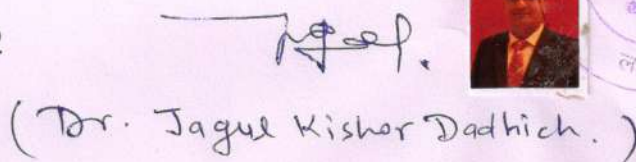 (Dr. Jagul Kishor Dadhich.)